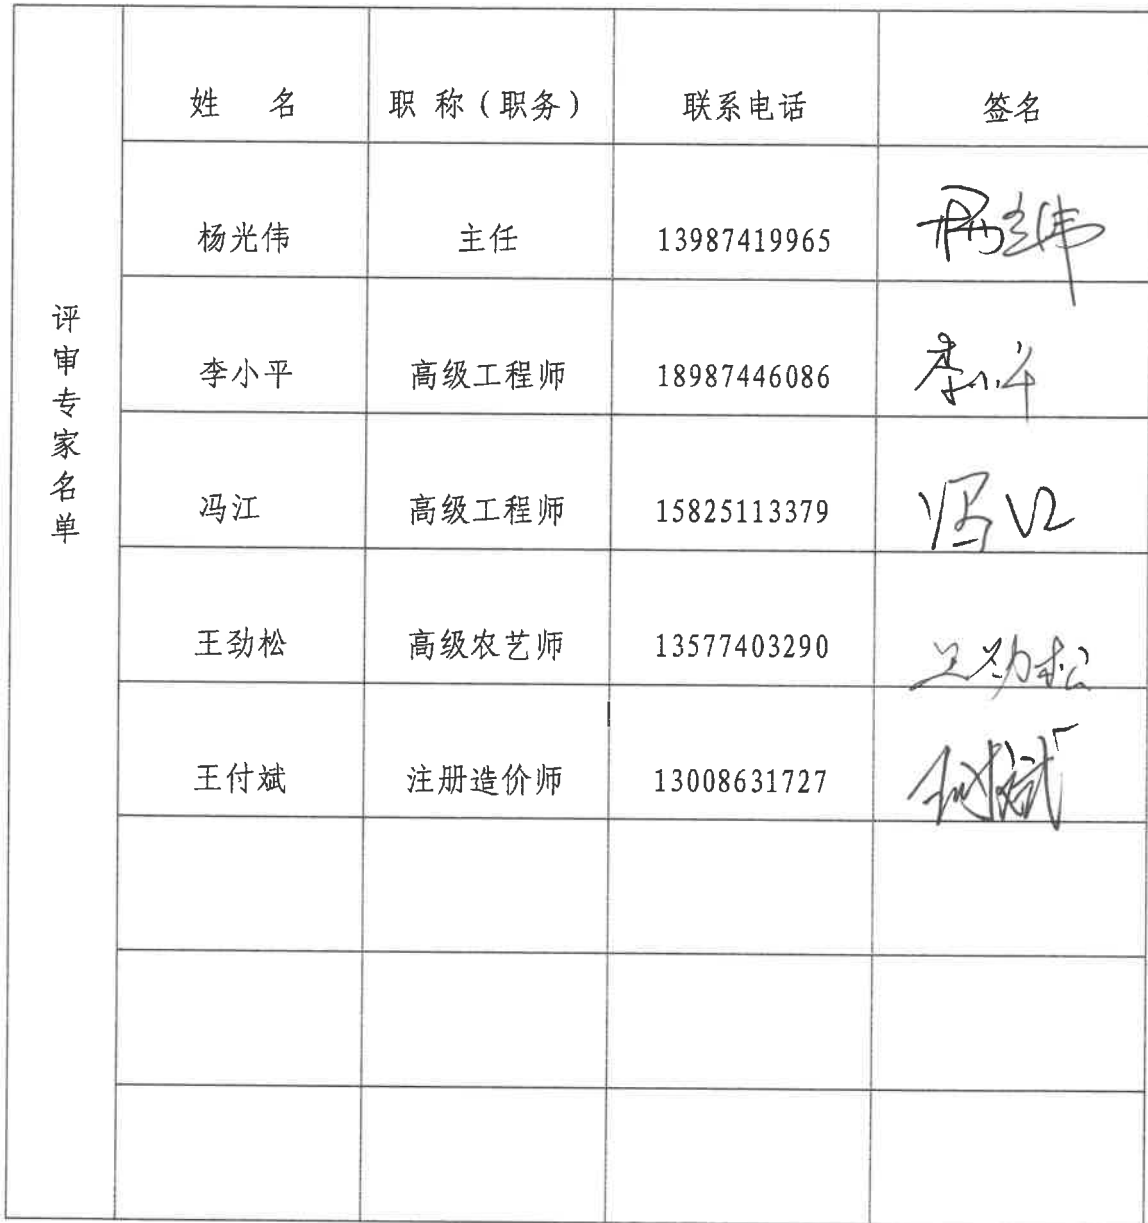 姓 名 职 称（职务） 联系电话 签名
评审专家名单
杨光伟 主任 13987419965 杨光伟
李小平 高级工程师 18987446086 李小平
冯江 高级工程师 15825113379 冯江
王劲松 高级农艺师 13577403290 王劲松
王付斌 注册造价师 13008631727 王付斌